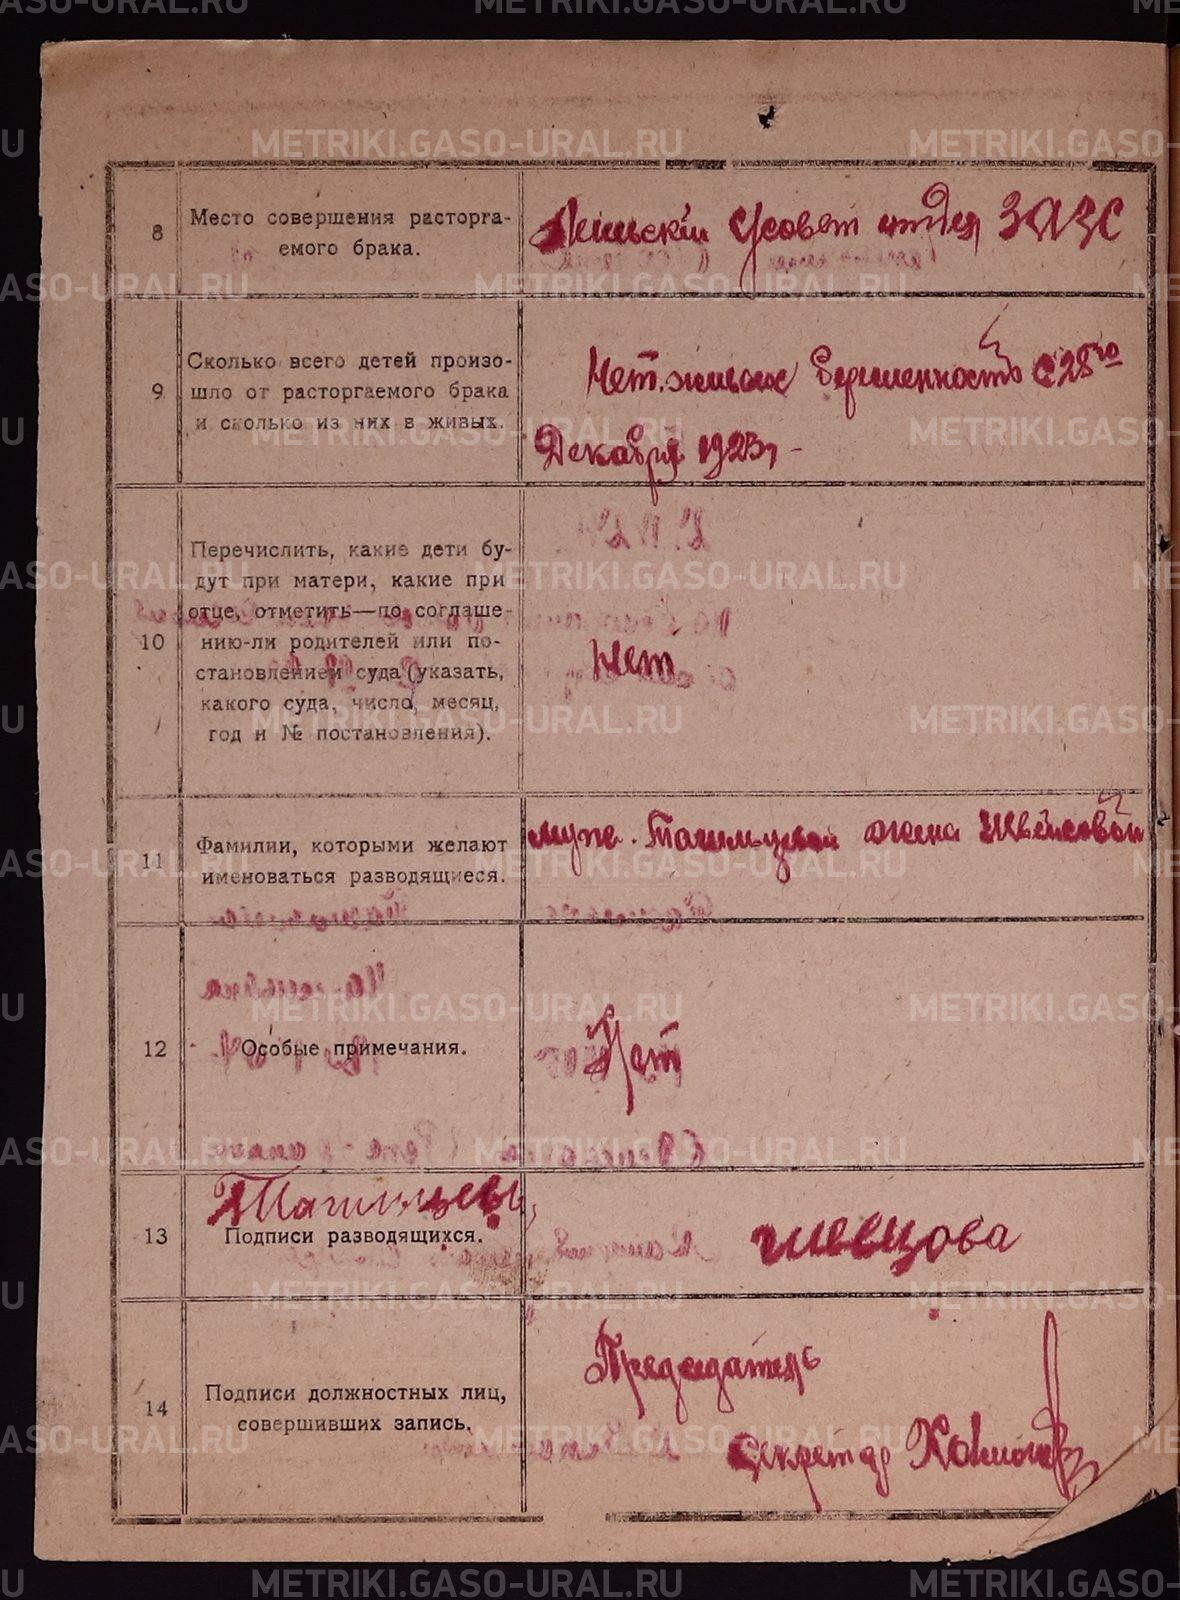 METRIKI.GASO-URAL.RU
8
Место совершения расторга-
емого брака.
совет отдел ЗАГС
9
Сколько всего детей произо-
шло от расторгаемого брака
и сколько из них в живых.
Нет. живых беременность с 28го
Декабря 1923г –
10
Перечислить, какие дети бу-
дут при матери, какие при
отце, отметить—по соглаше-
нию-ли родителей или по-
становлением суда (указать,
какого суда, число, месяц,
год и № постановления).
Нет
11
Фамилии, которыми желают
именоваться разводящиеся.
муж. жена
12
Особые примечания.
Нет
13
Подписи разводящихся.
Тагильцевъ
шевцова
14
Подписи должностных лиц,
совершивших запись.
Председатель
секретарь